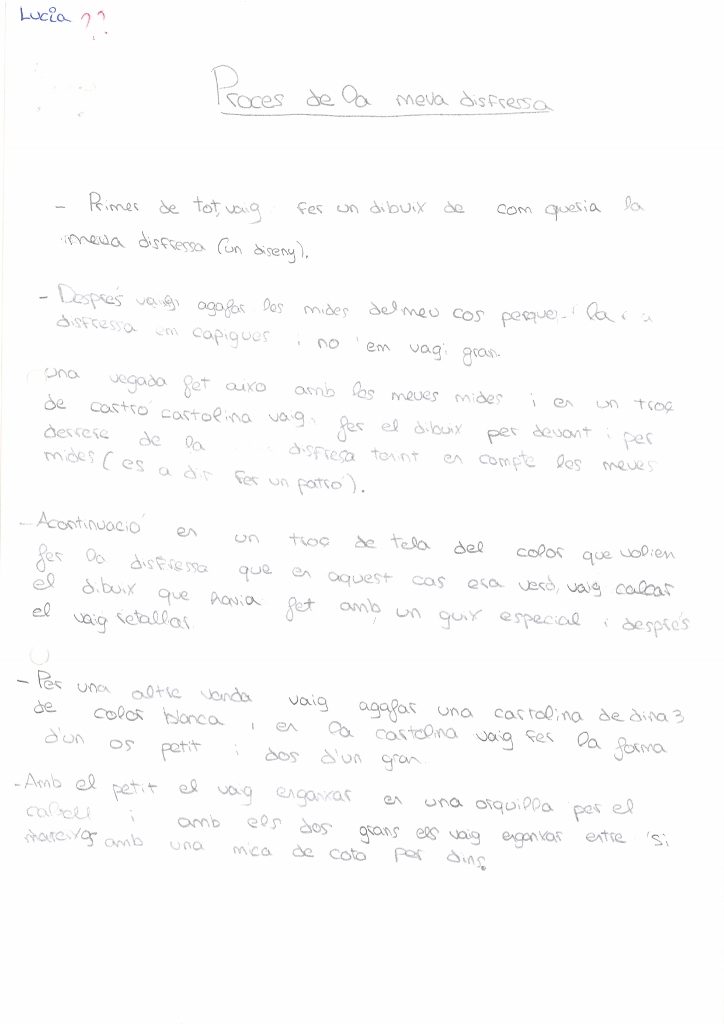 Lucia ??
Proces de la meva disfressa
- Primer de tot, vaig fer un dibuix de com queria la
meva disfressa (un diseny).
- Després vaig agafar les mides del meu cos perque la
disfressa em capigues i no em vagi gran.
una vegada fet auxo amb les meves mides i en un troç
de cartró cartolina vaig fer el dibuix per devant i per
derrere de la disfresa tenint en compte les meves
mides (es a dir fer un patró).
- Acontinuació en un troç de tela del color que volien
fer la disfressa que en aquest cas era verd, vaig calcar
el dibuix que havia fet amb un guix especial i després
el vaig retallar
- Per una altre vanda vaig agafar una cartolina de dina3
de color blanca i en la cartolina vaig fer la forma
d'un os petit i dos d'un gran.
- Amb el petit el vaig enganxar en una orquilla per el
cabell i amb els dos grans els vaig enganxar entre si
mateixos amb una mica de coto per dins.